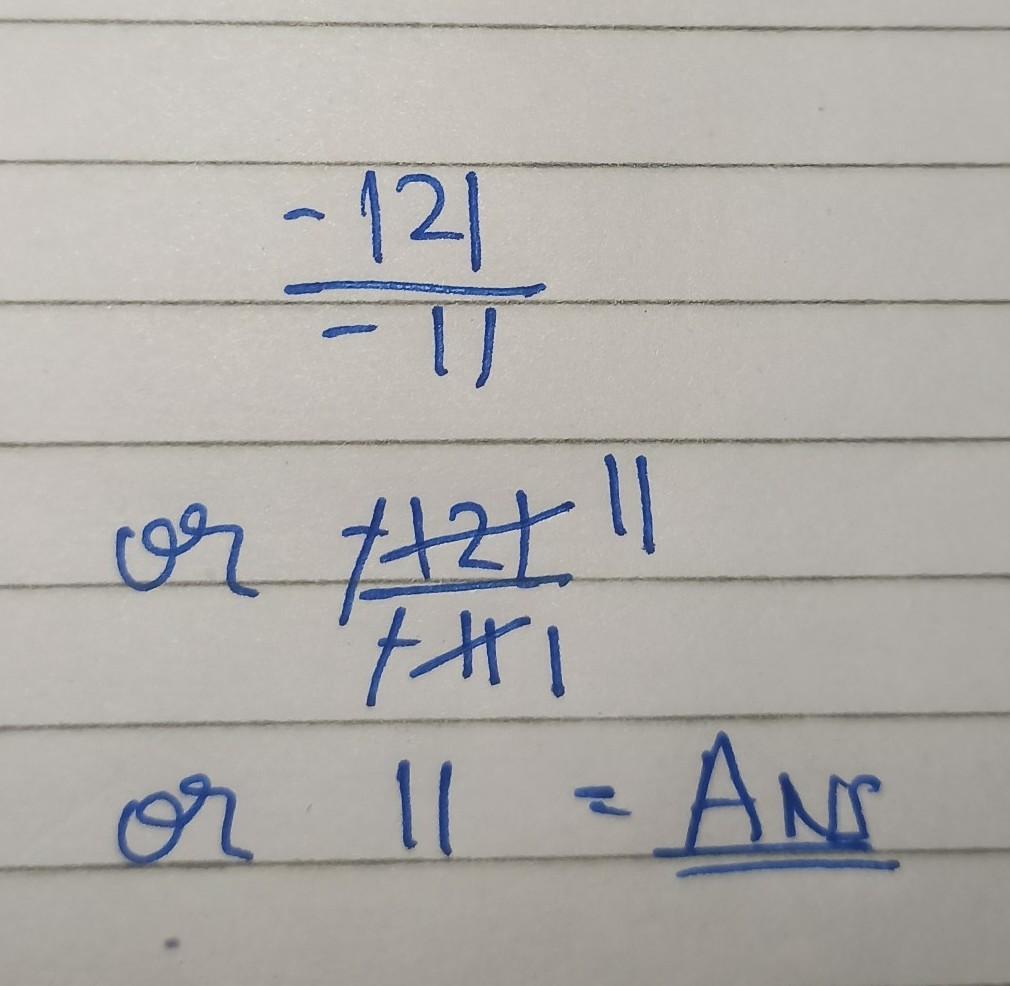 -121
- 11
or -121 11
- 11 1
or 11 = Ans